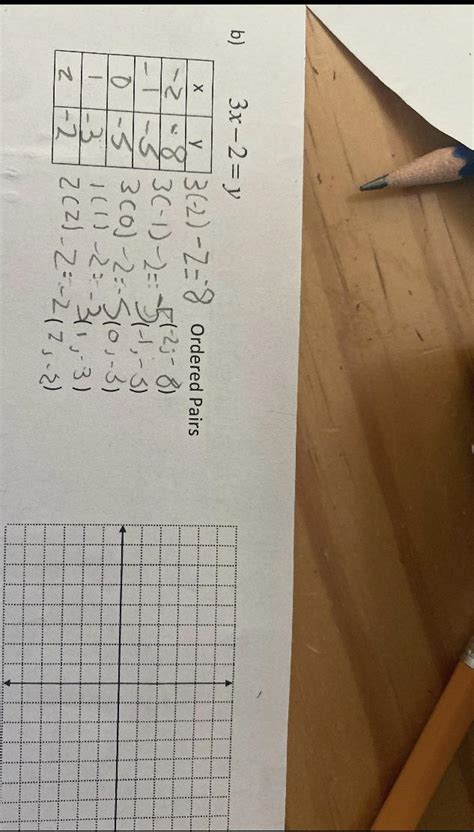 b) 3x − 2 = y
x y 3(-2) -2=-8 Ordered Pairs
-2 -8 3(-1) -2=-5 (-2,-8)
-1 -5 3(0) -2=-5 (-1,-5)
0 -5 1(1) -2=-3 (0,-5)
1 -3 2(2) -2=-2 (1,-3)
2 -2 (2,-2)